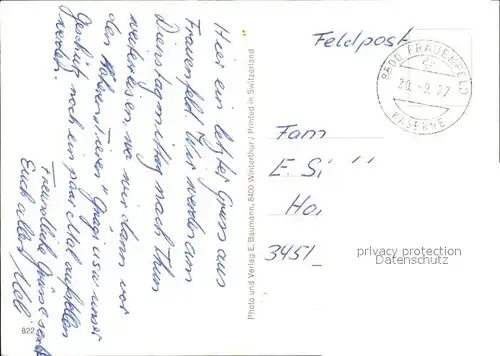 Hier ein letzter Gruss aus
Frauenfeld. Wir werden am
Dienstagmittag nach Thun
weiterreisen, wo wir dann vor
den hohen Tieren" usw unser
Geschütz noch ein paar Mal aufstellen
werden.
Freundliche Grüsse sendet
Euch allen Ueli
Photo und Verlag E. Baumann, 8400 Winterthur / Printed in Switzerland
822
Feldpost
8500 FRAUENFELD
20.-9.77
KASERNE
Fam
E. Si
Ho
3451
privacy protection
Datenschutz